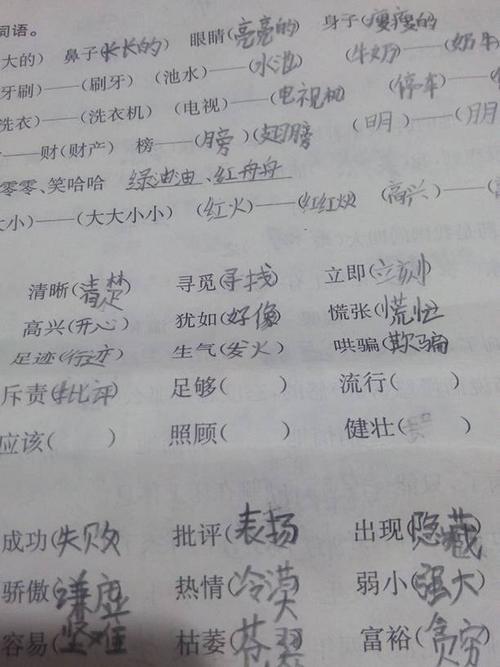 词语。
大的) 鼻子(长长的) 眼睛(亮亮的) 身子(瘦瘦的
牙刷)——(刷牙) (池水)——(水池) (牛奶)——(奶牛
洗衣)——(洗衣机) (电视)——(电视机) (停车)——(
——财(财产) 榜——(膀)(翅膀) (日月)——(
零零、笑哈哈 绿油油、红舟舟
大小)——(大大小小) (红火)——(红红火 (高兴)——(
清晰(清楚) 寻觅(寻找) 立即(立刻)
高兴(开心) 犹如(好像) 慌张(慌忙
足迹(行迹) 生气(发火) 哄骗(欺骗
斥责(批评) 足够( ) 流行( )
应该( ) 照顾( ) 健壮( )
成功(失败) 批评(表扬 出现(隐藏
骄傲(谦虚 热情(冷漠 弱小(强大)
容易(坚难 枯萎( 富裕(贫穷